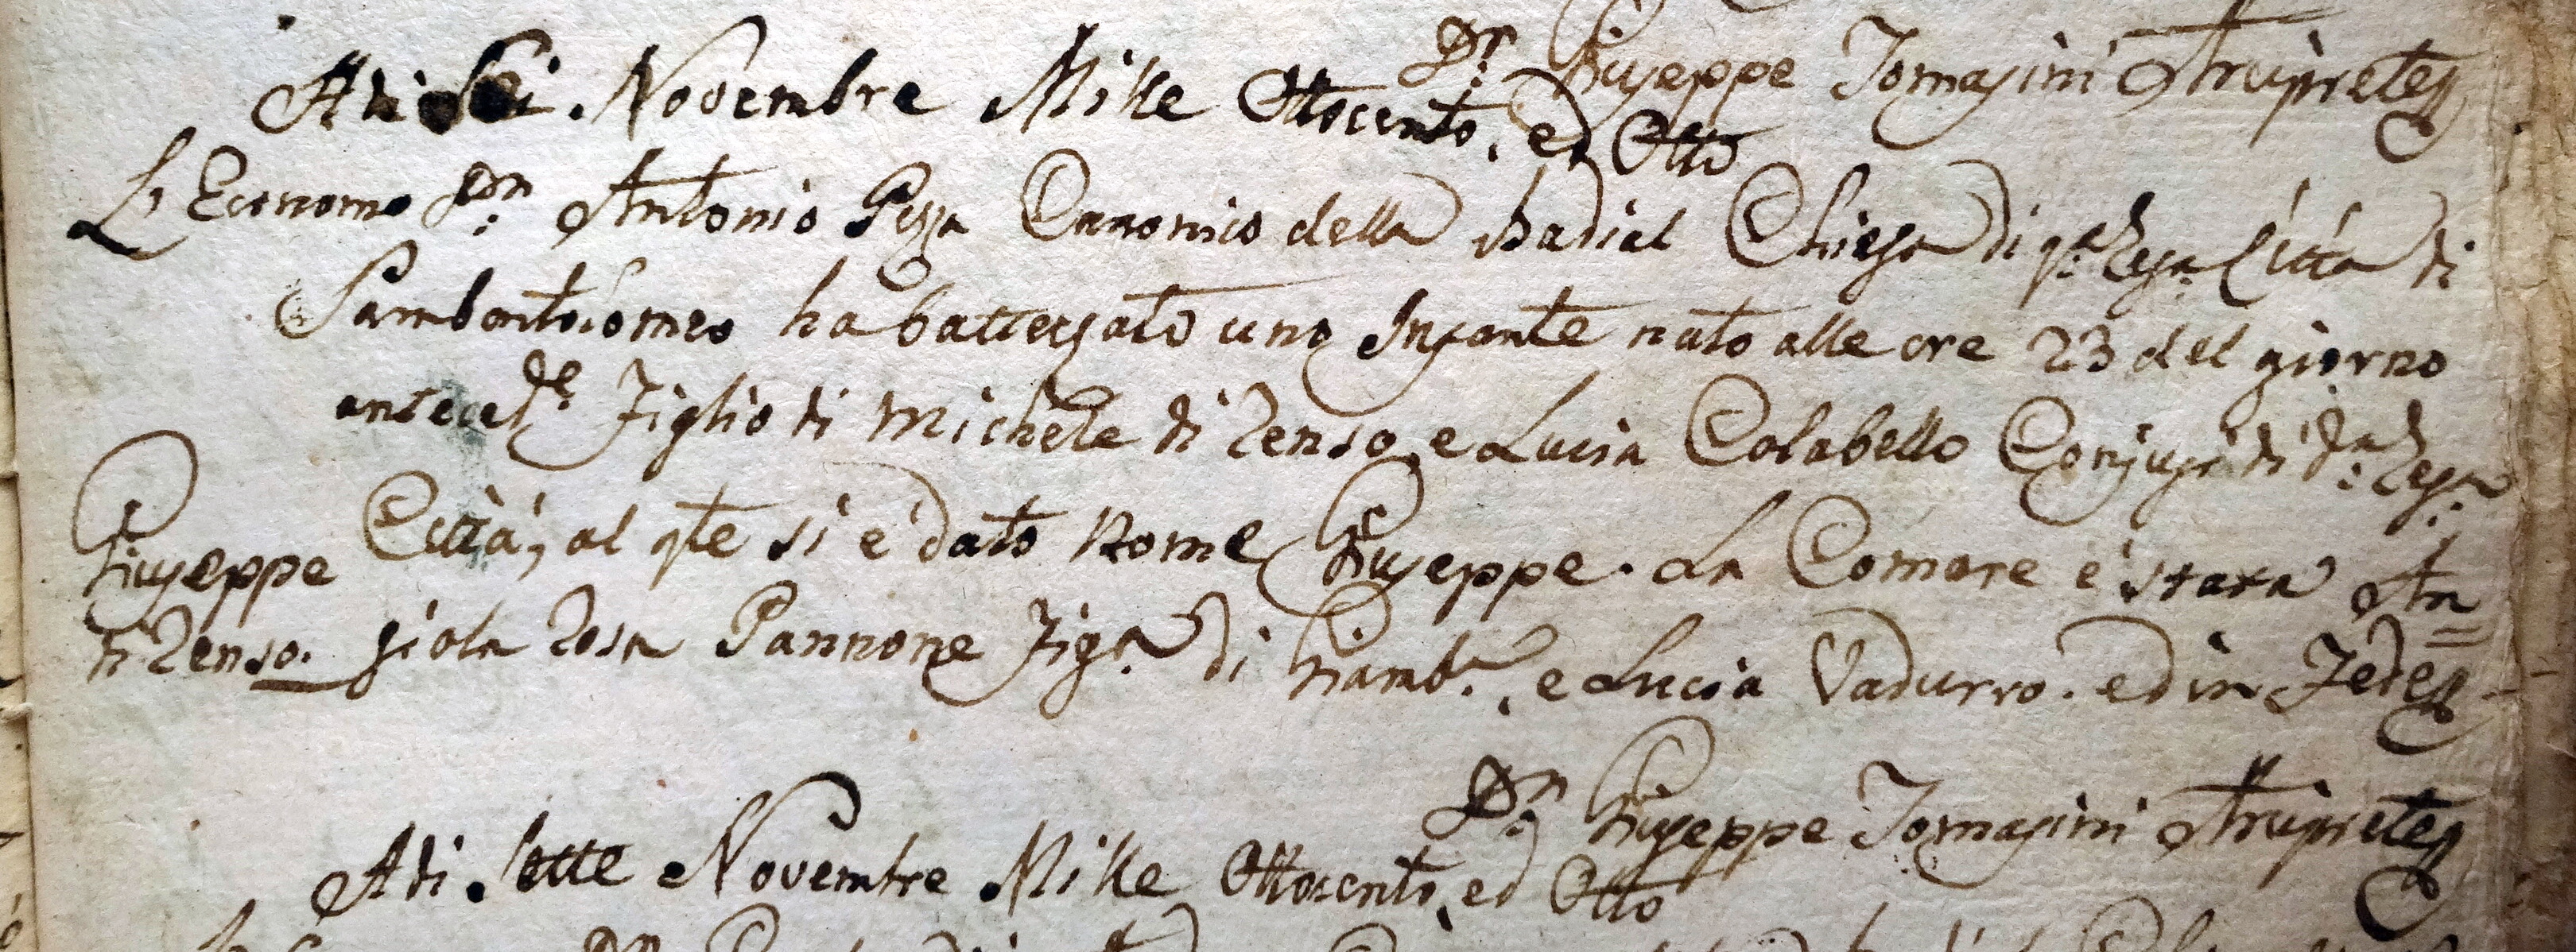 Dn: Giuseppe Tomasini Arciprete
A di Sei Novembre Mille Ottocento, ed Otto
L'Economo Dn: Antonio Pizza Cannonico della Badial Chiesa di qa: Rega: Città di
Sambartolomeo ha battezzato uno Infante nato alle ore 23 del giorno
antecede: Figlio di Michele di Renso, e Lucia Colabello Conjugi di da: Rega:
Giuseppe
di Renso.
Città, al qle si è dato Nome Giuseppe. La Comare è stata An=
giola Rosa Pannone Figa: di Giamba:, e Lucia Vadurro. ed in Fede
Dn: Giuseppe Tomasini Arciprete
A di Sette Novembre Mille Ottocento, ed Otto